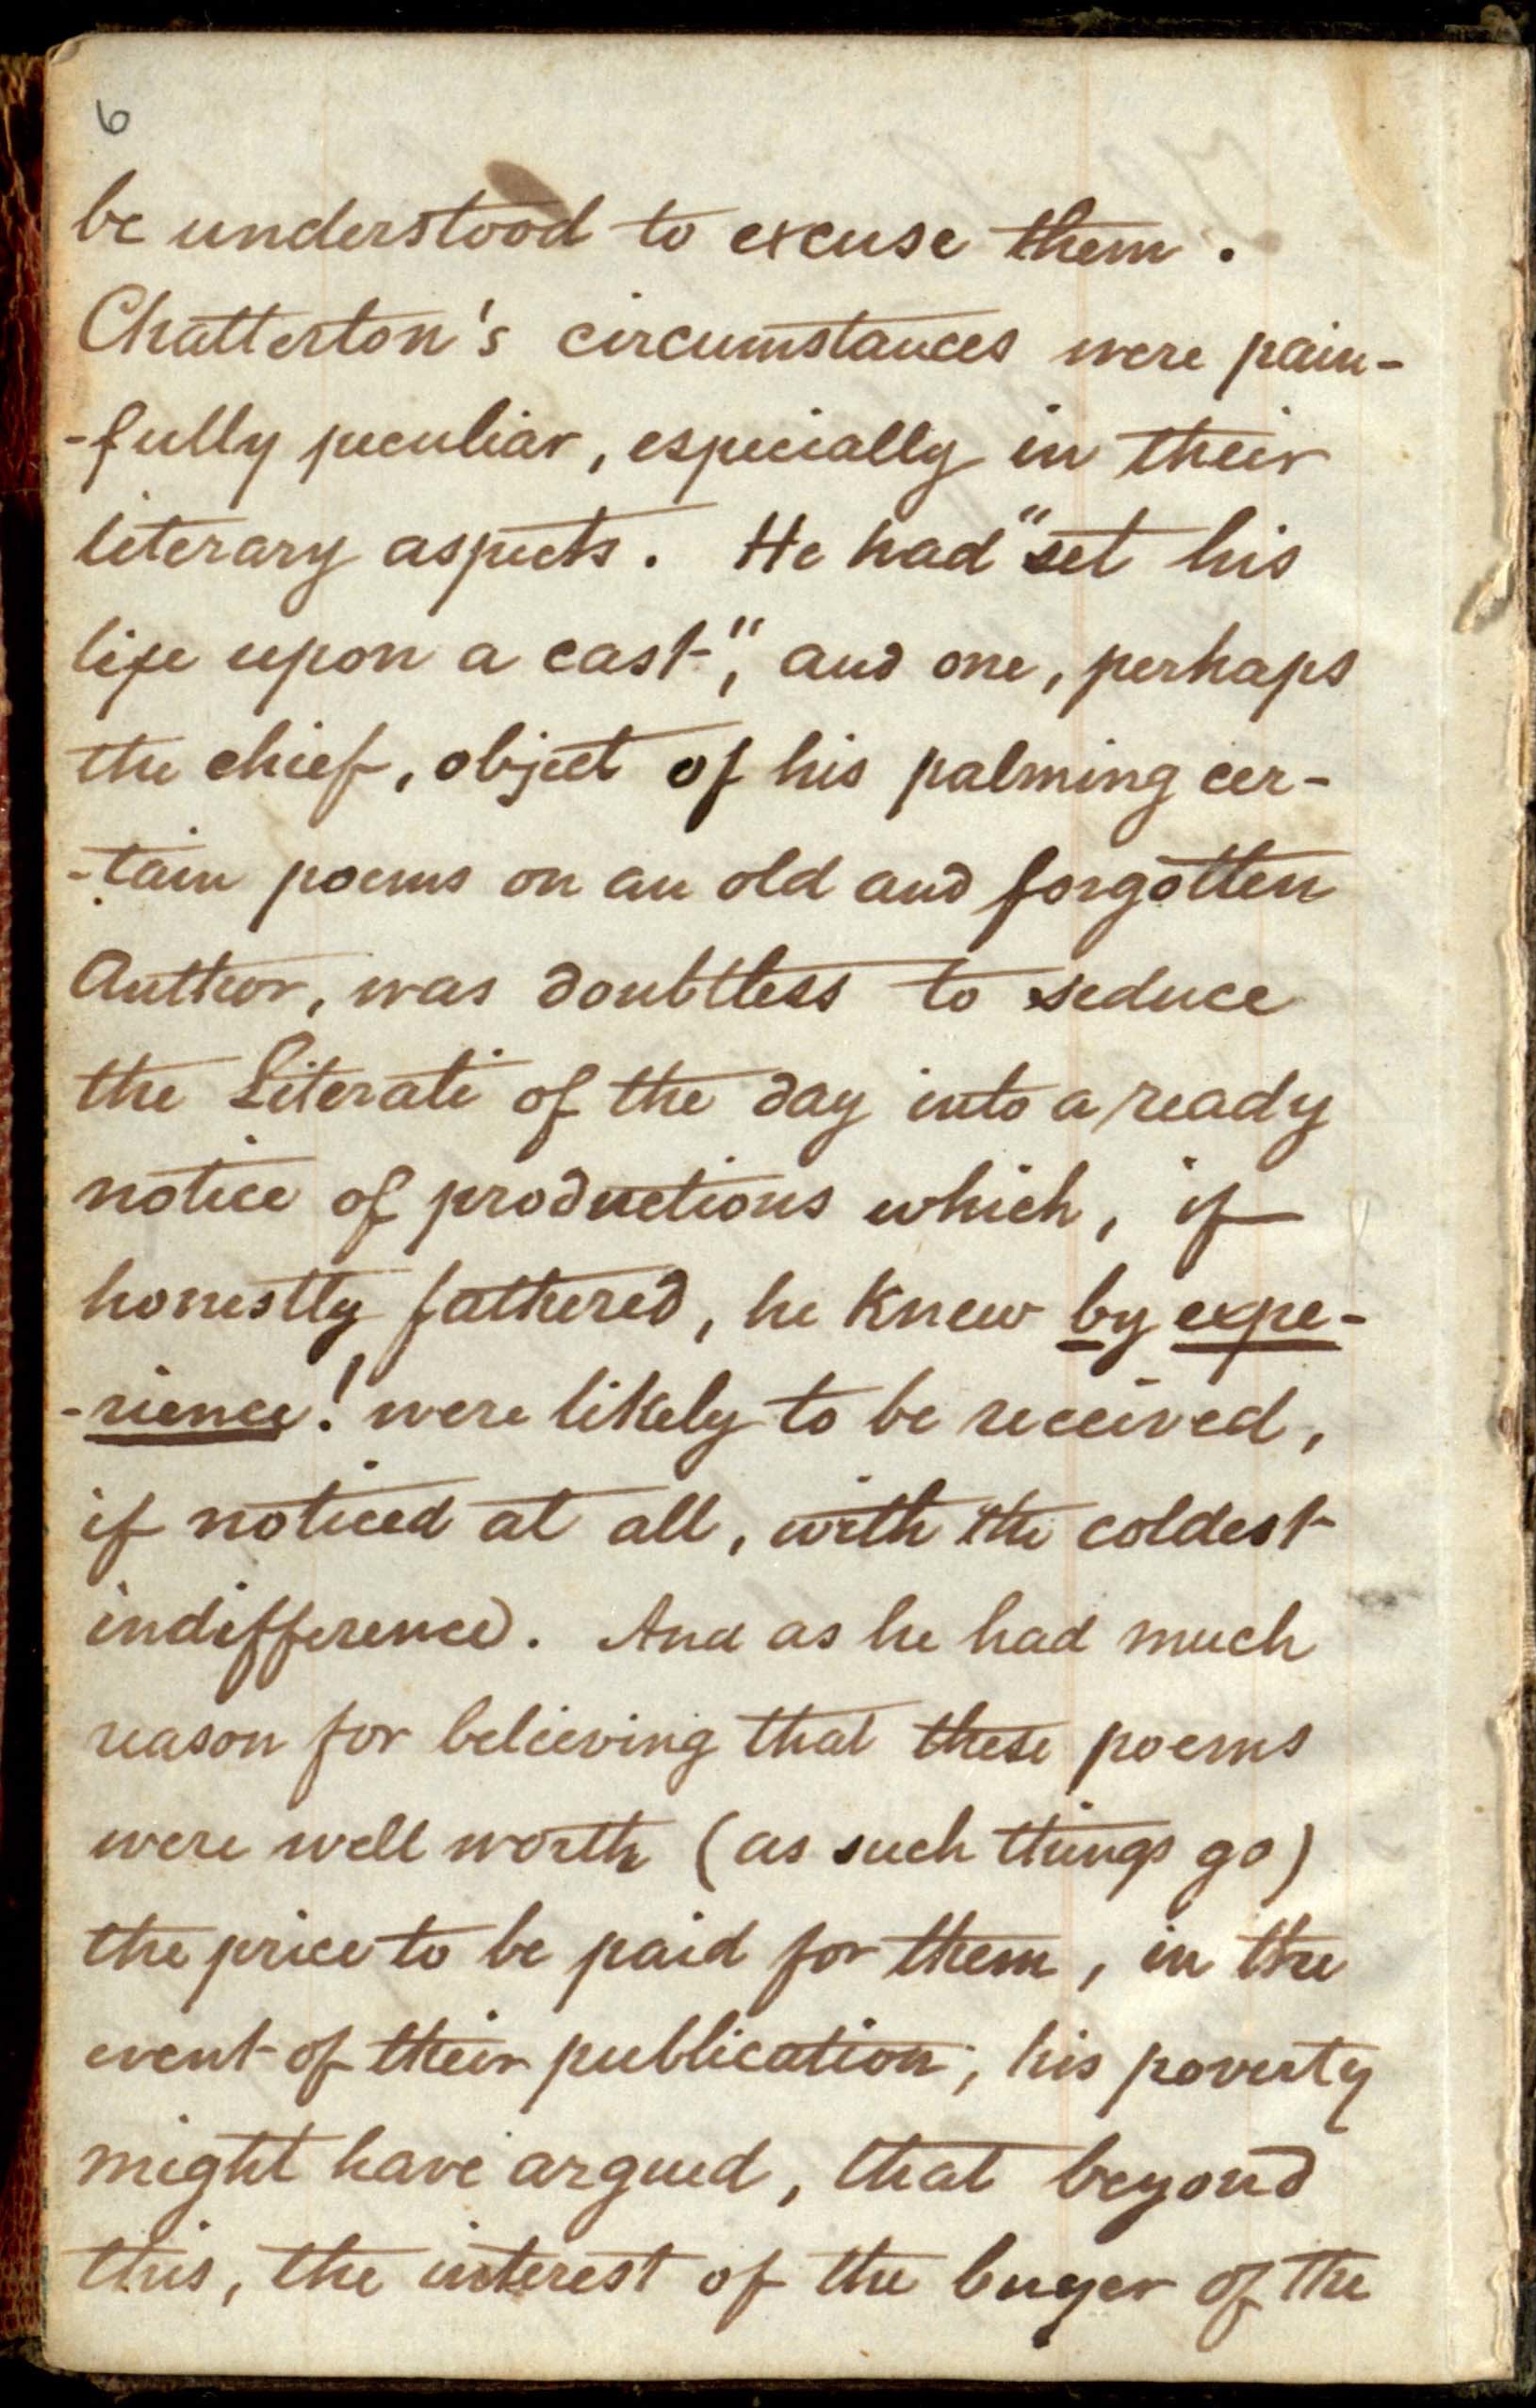 6
be understood to excuse them.
Chatterton's circumstances were pain-
-fully peculiar, especially in their
literary aspects. He had "set his
life upon a cast", and one, perhaps
the chief, object of his palming cer-
-tain poems on an old and forgotten
Author, was doubtless to seduce
the Literati of the day into a ready
notice of productions which, if
honestly fathered, he knew by expe-
-rience! were likely to be received,
if noticed at all, with the coldest
indifference. And as he had much
reason for believing that these poems
were well worth (as such things go)
the price to be paid for them, in the
event of their publication, his poverty
might have argued, that beyond
this, the interest of the buyer of the